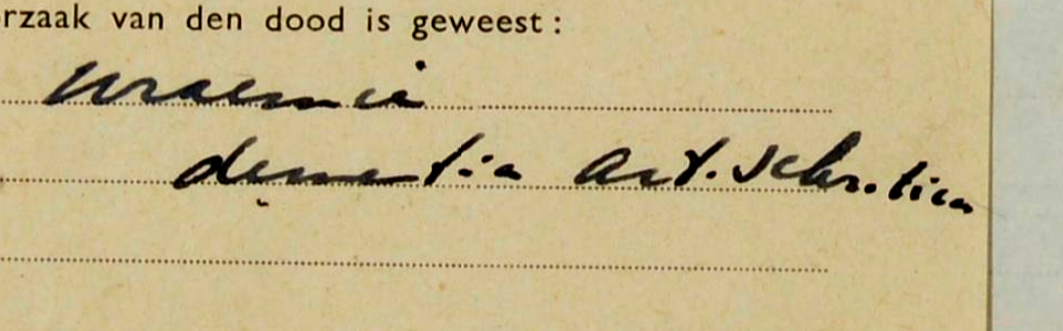 rzaak van den dood is geweest :
uraemia
dementia art. sclerotica